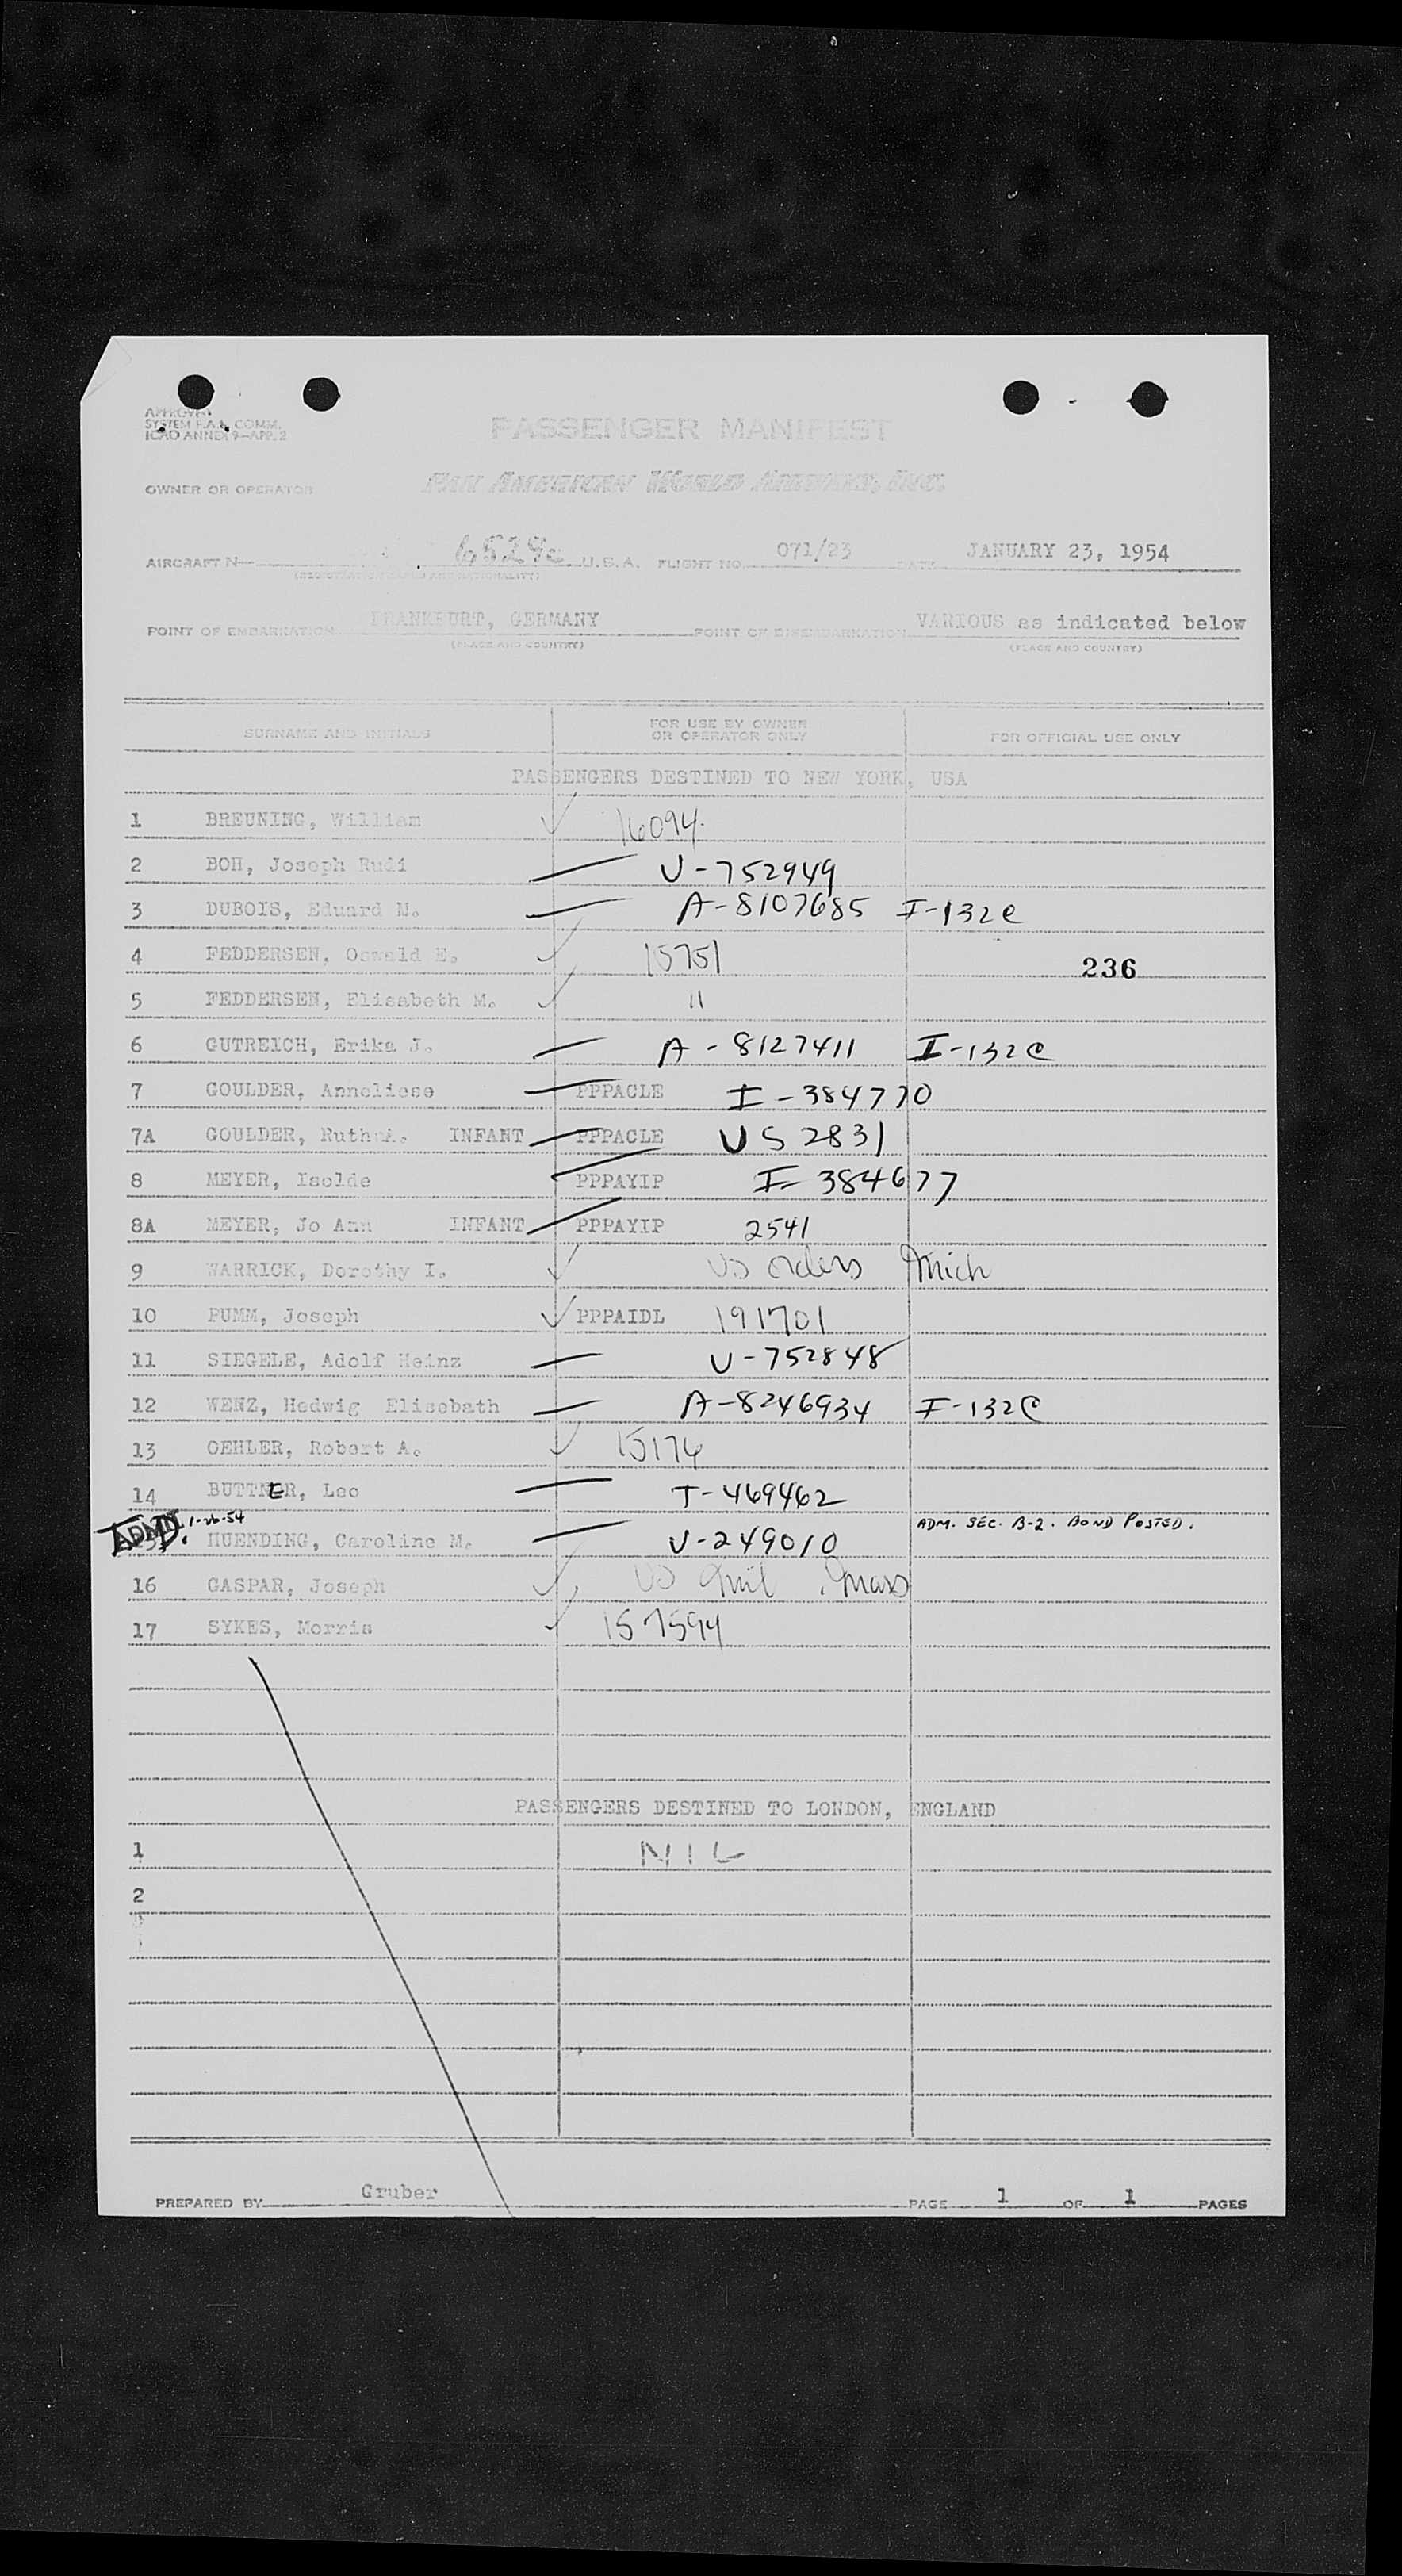 APPROVED
SYSTEM F.A.L. COMM.
ICAO ANNEX 9—APP. 2
PASSENGER MANIFEST
OWNER OR OPERATOR PAN AMERICAN WORLD AIRWAYS, INC.
AIRCRAFT N— U.S.A. FLIGHT NO. 071/23 DATE JANUARY 23, 1954
(REGISTRATION MARKS AND NATIONALITY)
POINT OF EMBARKATION FRANKFURT, GERMANY POINT OF DISEMBARKATION VARIOUS as indicated below
(PLACE AND COUNTRY) (PLACE AND COUNTRY)
SURNAME AND INITIALS FOR USE BY OWNER OR OPERATOR ONLY FOR OFFICIAL USE ONLY
PASSENGERS DESTINED TO NEW YORK, USA
1 BREUNING, William 16094
2 BOH, Joseph Rudi U-752949
3 DUBOIS, Eduard N. A-8107685 I-132C
4 FEDDERSEN, Oswald E. 15751 236
5 FEDDERSEN, Elisabeth M. "
6 GUTREICH, Erika J. A-8127411 I-132C
7 GOULDER, Anneliese PPPACLE I-384770
7A GOULDER, Ruth A. INFANT PPPACLE US 2831
8 MEYER, Isolde PPPAYIP I-384677
8A MEYER, Jo Ann INFANT PPPAYIP 2541
9 WARRICK, Dorothy I. US orders Mich
10 PUMM, Joseph PPPAIDL 191701
11 SIEGELE, Adolf Heinz U-752848
12 WENZ, Hedwig Elisebath A-8246934 I-132C
13 OEHLER, Robert A. 15174
14 BUTTNER, Leo T-469462
ADMD. 1-26-54 HUENDING, Caroline M. V-249010 ADM. SEC. B-2. BOND POSTED.
16 GASPAR, Joseph US mil. Mass
17 SYKES, Morris 157594
PASSENGERS DESTINED TO LONDON, ENGLAND
1 NIL
2
PREPARED BY Gruber PAGE 1 OF 1 PAGES